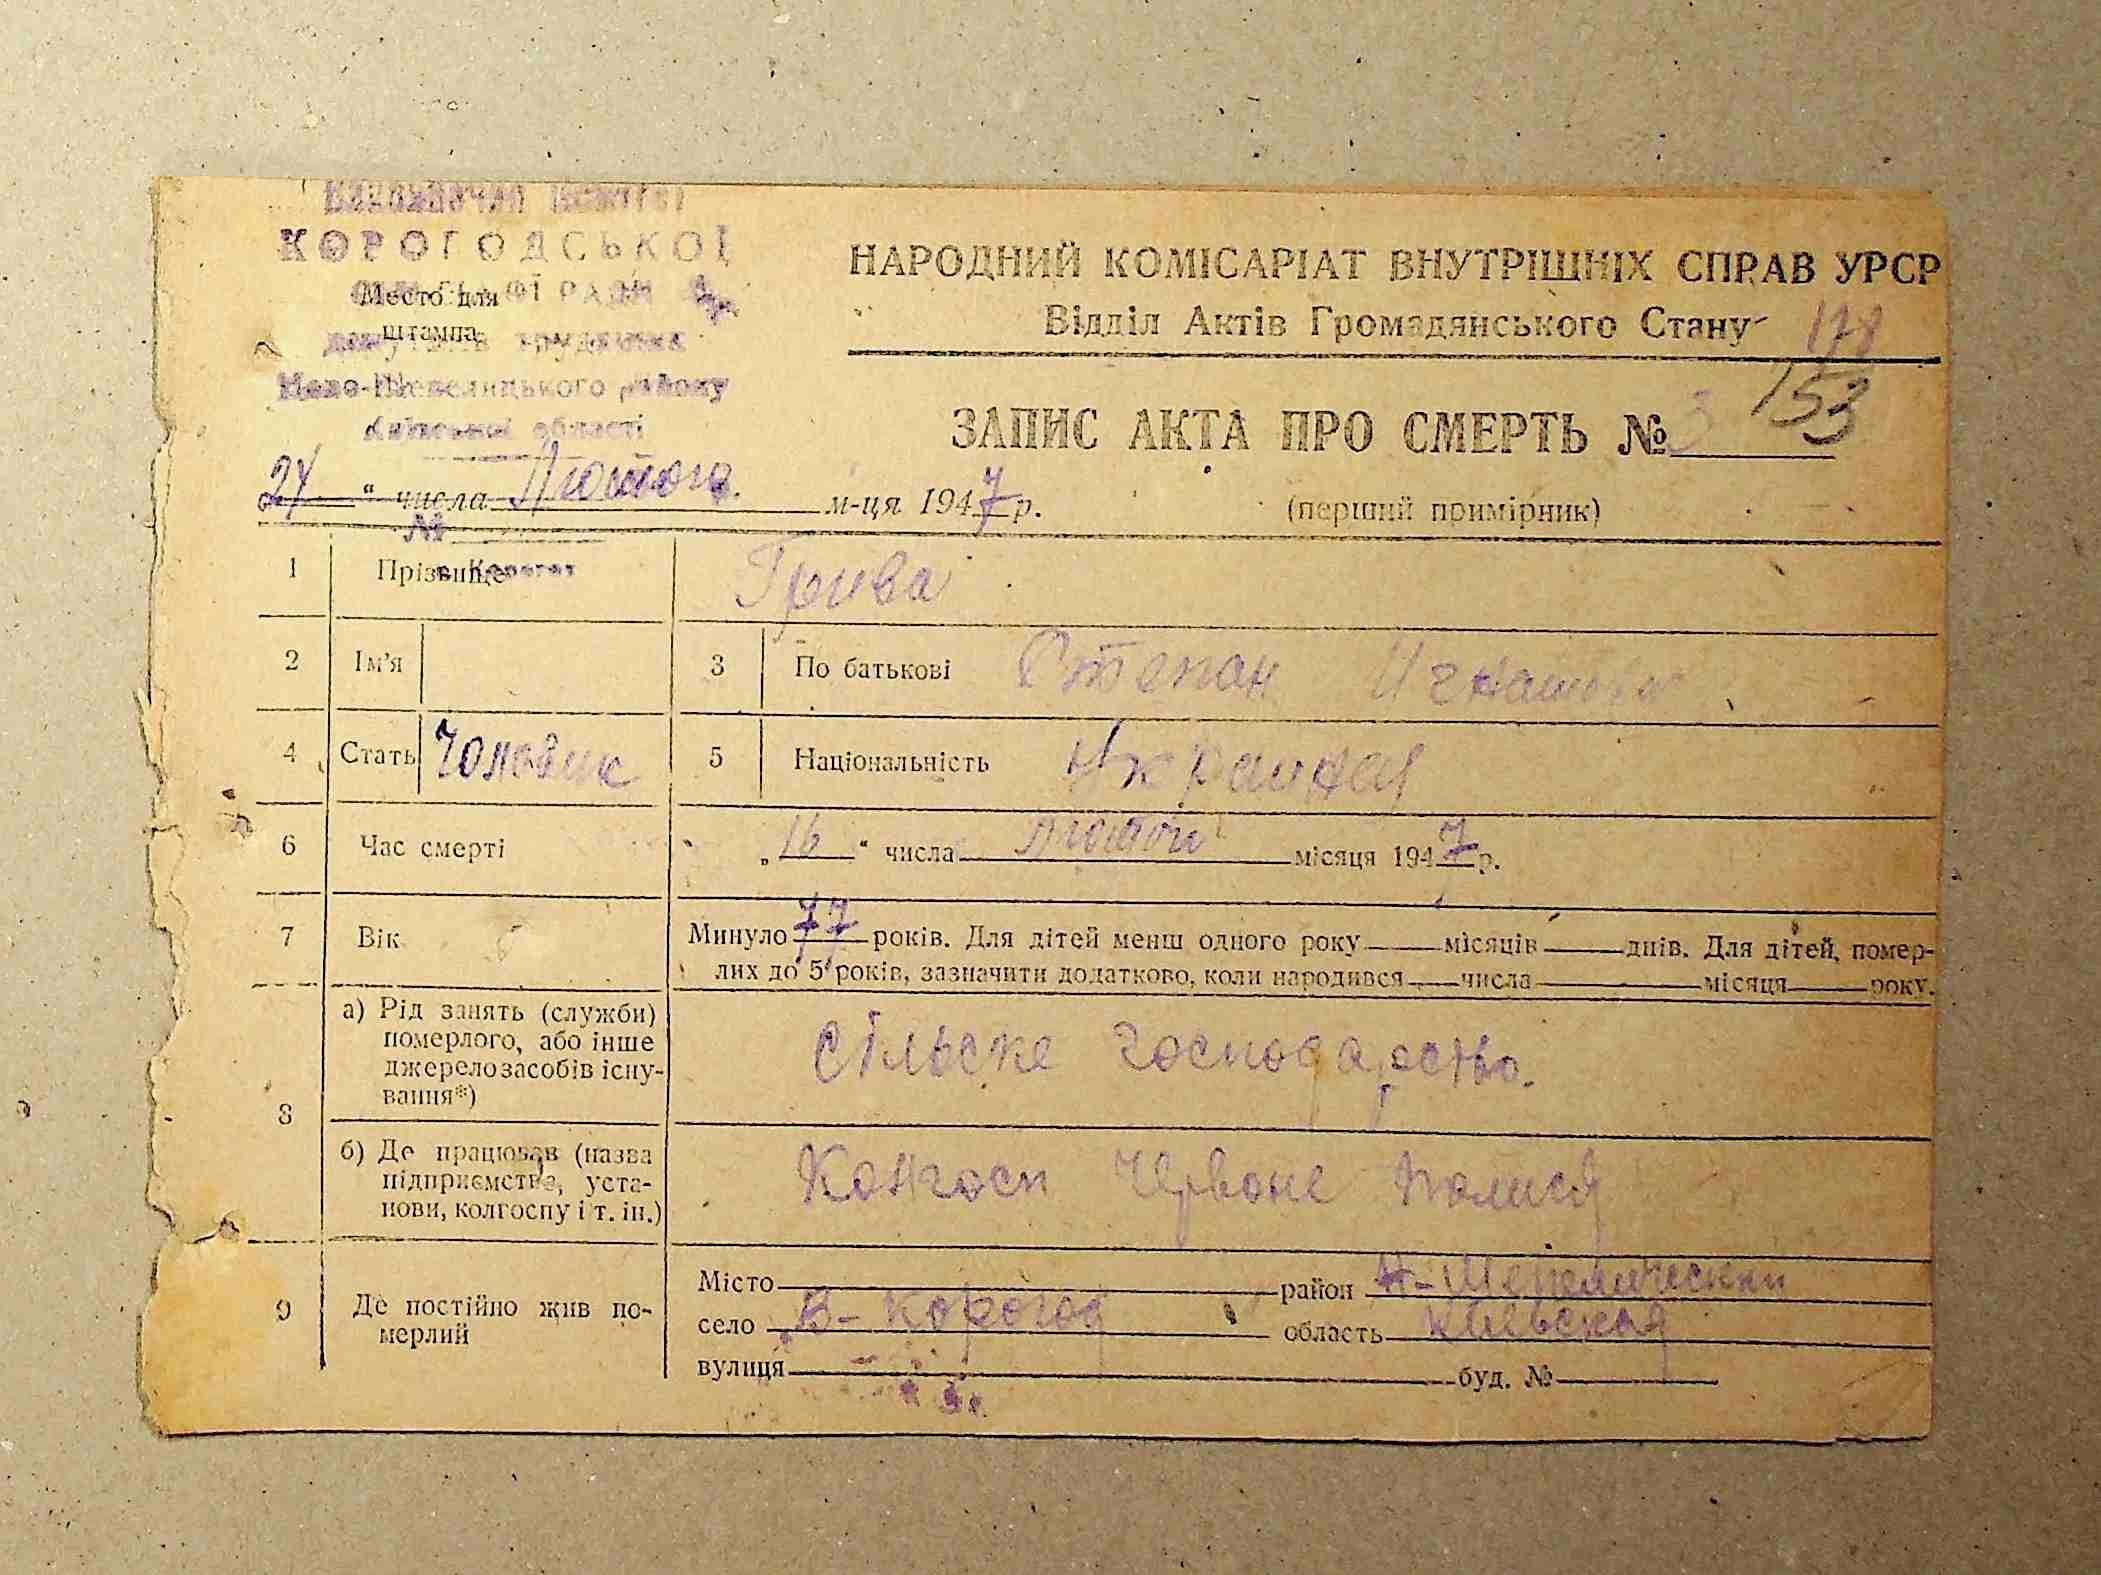 ВИКОНАВЧИЙ КОМІТЕТ
КОРОГОДСЬКОЇ
РАДИ
Место для
штампа
Ново-Шепелицького району
Київської області
НАРОДНИЙ КОМІСАРІАТ ВНУТРІШНІХ СПРАВ УРСР
Відділ Актів Громадянського Стану
153
ЗАПИС АКТА ПРО СМЕРТЬ № 3
24 “ числа Лютого м-ця 1947 р.
(перший примірник)
№
1 Прізвище Грива
2 Ім'я 3 По батькові Степан Игнатов
4 Стать Чоловик 5 Національність
6 Час смерті „ 16 “ числа лютого місяця 1947 р.
7 Вік Минуло 77 років. Для дітей менш одного року місяців днів. Для дітей, помер-
лих до 5 років, зазначити додатково, коли народився числа місяця року.
8 а) Рід занять (служби)
померлого, або інше
джерело засобів існу-
вання*)
Сільське господарство.
б) Де працював (назва
підприємства, уста-
нови, колгоспу і т. ін.)
Колгосп Червоне Полися
9 Де постійно жив по-
мерлий
Місто район Н-Шепелический
село В-Корогод область Киевская
вулиця буд. №